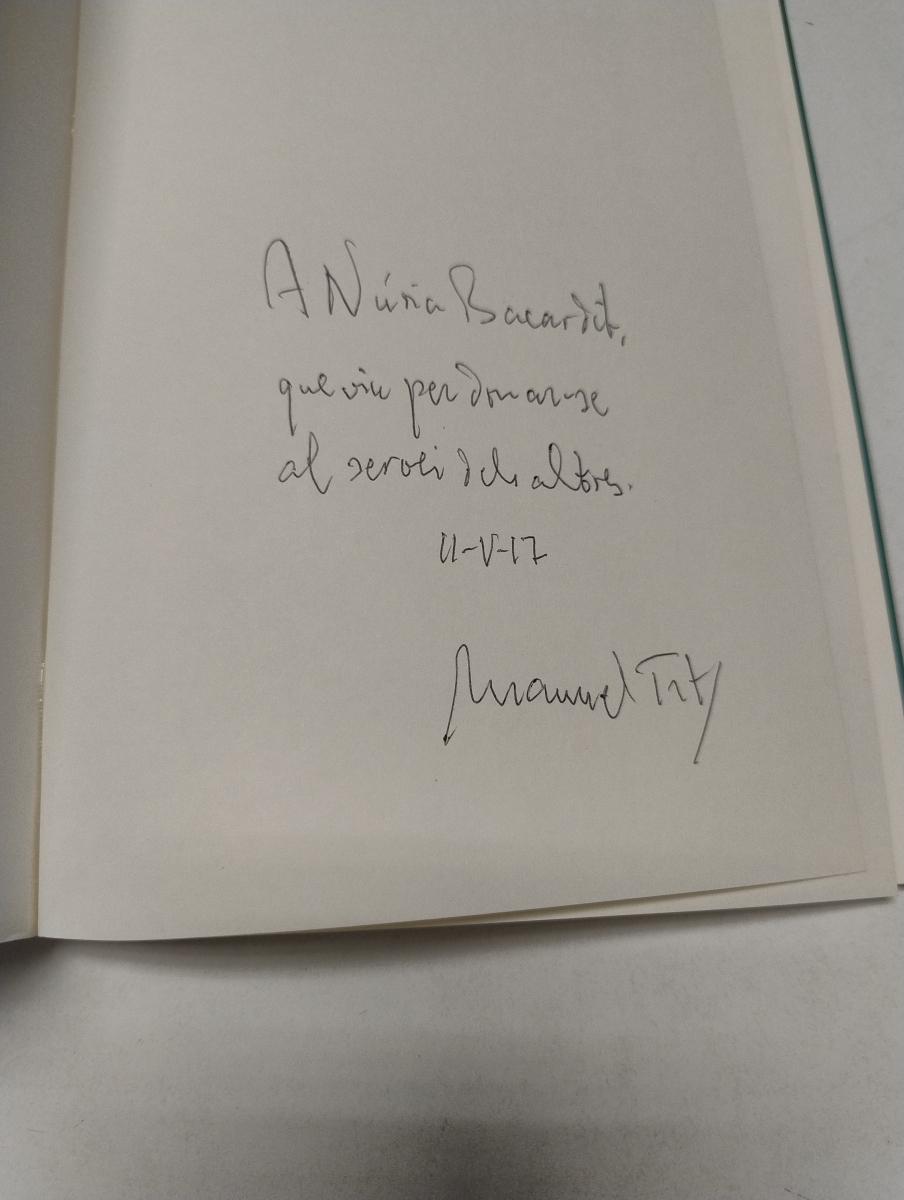 A Núria Bacardit,
que viu per donar-se
al servei dels altres.
11-V-17
Manuel